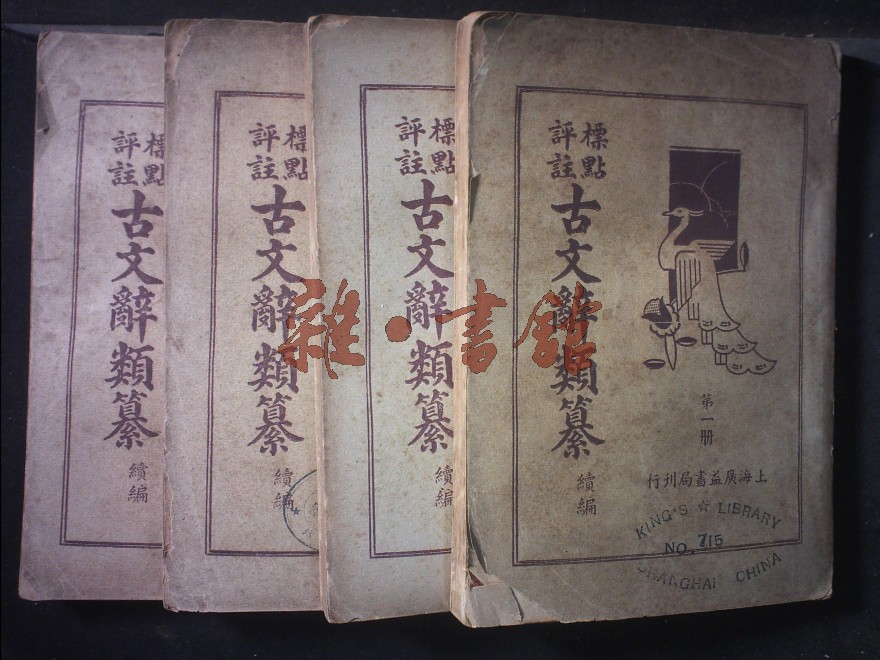 標點
評註
古文辭類纂
續編
標點
評註
古文辭類纂
續編
標點
評註
古文辭類纂
續編
標點
評註
古文辭類纂
續編
第一册
上海廣益書局刊行
KING'S ☆ LIBRARY
NO. 715
SHANGHAI CHINA
雜·書館